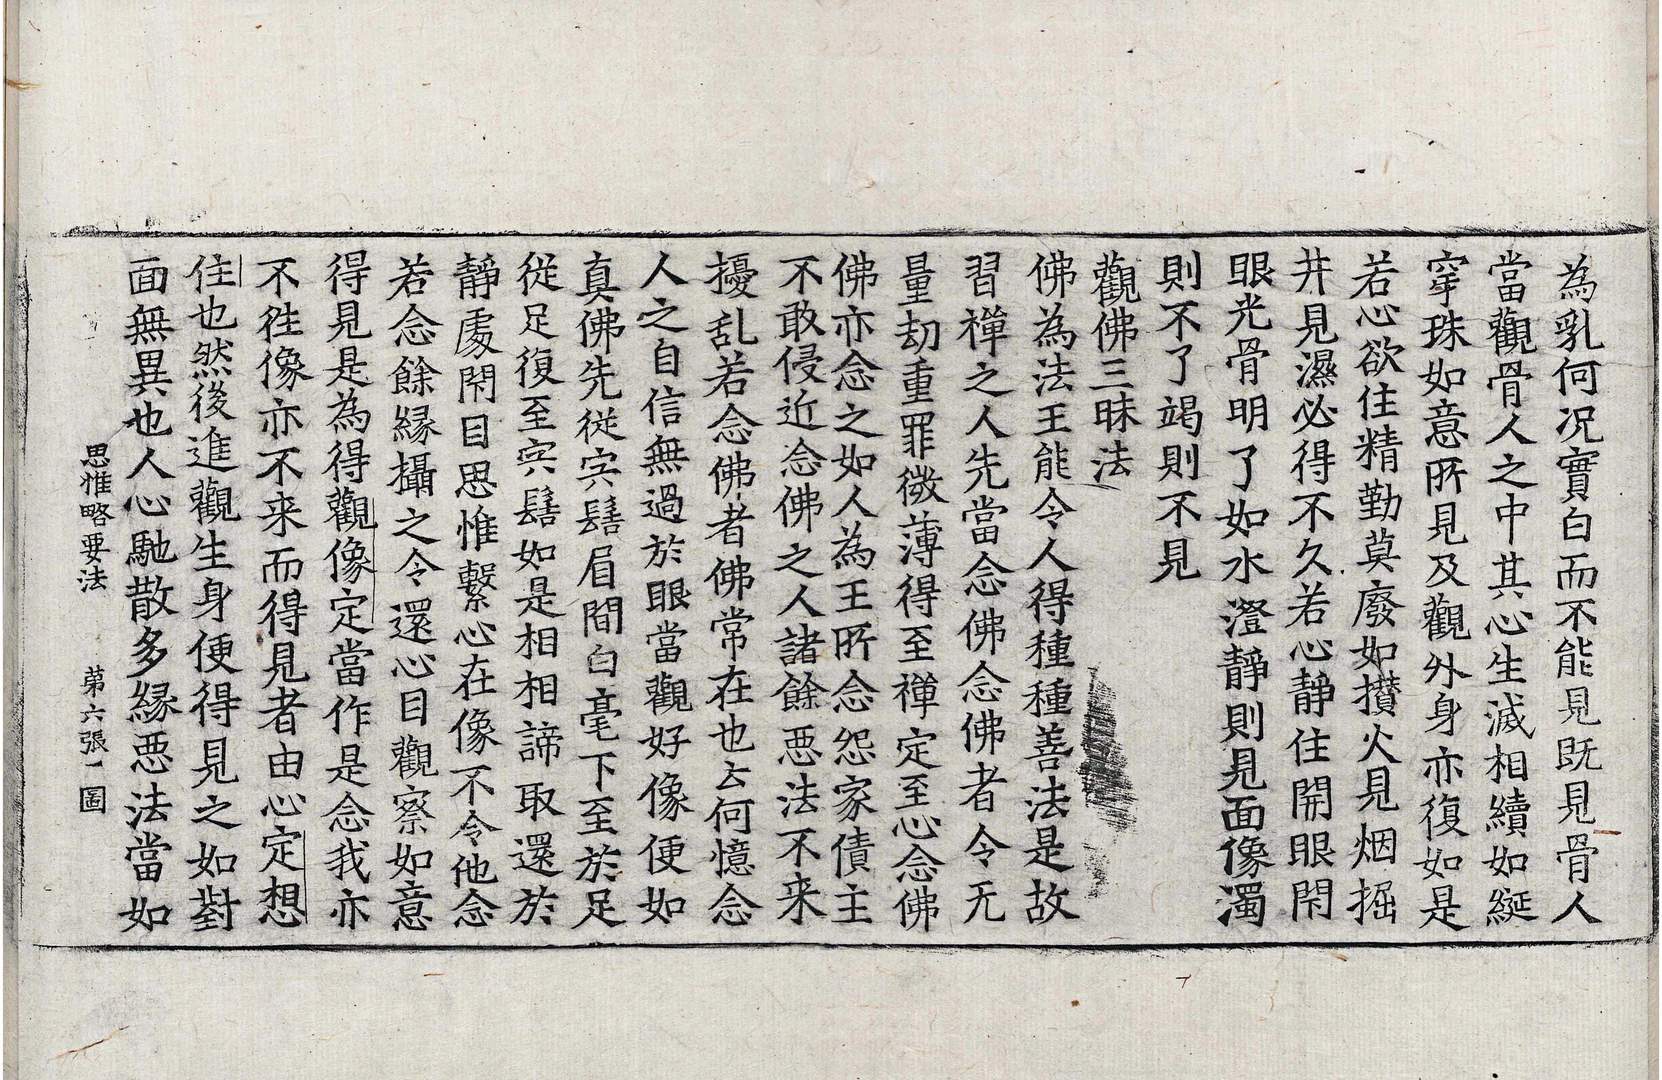 為乳何况實白而不能見既見骨人
當觀骨人之中其心生滅相續如綖
穿珠如意所見及觀外身亦復如是
若心欲住精勤莫廢如攅火見烟掘
井見濕必得不久若心靜住開眼閇
眼光骨明了如水澄靜則見面像濁
則不了竭則不見
觀佛三昧法
佛為法王能令人得種種善法是故
習禪之人先當念佛念佛者令无
量劫重罪微薄得至禪定至心念佛
佛亦念之如人為王所念怨家債主
不敢侵近念佛之人諸餘惡法不来
擾乱若念佛者佛常在也云何憶念
人之自信無過於眼當觀好像便如
真佛先從宍髻眉間白毫下至於足
從足復至宍髻如是相相諦取還於
靜處閇目思惟繫心在像不令他念
若念餘緣攝之令還心目觀察如意
得見是為得觀像定當作是念我亦
不往像亦不来而得見者由心定想
住也然後進觀生身便得見之如對
面無異也人心馳散多緣惡法當如
思惟略要法 第六張 圖